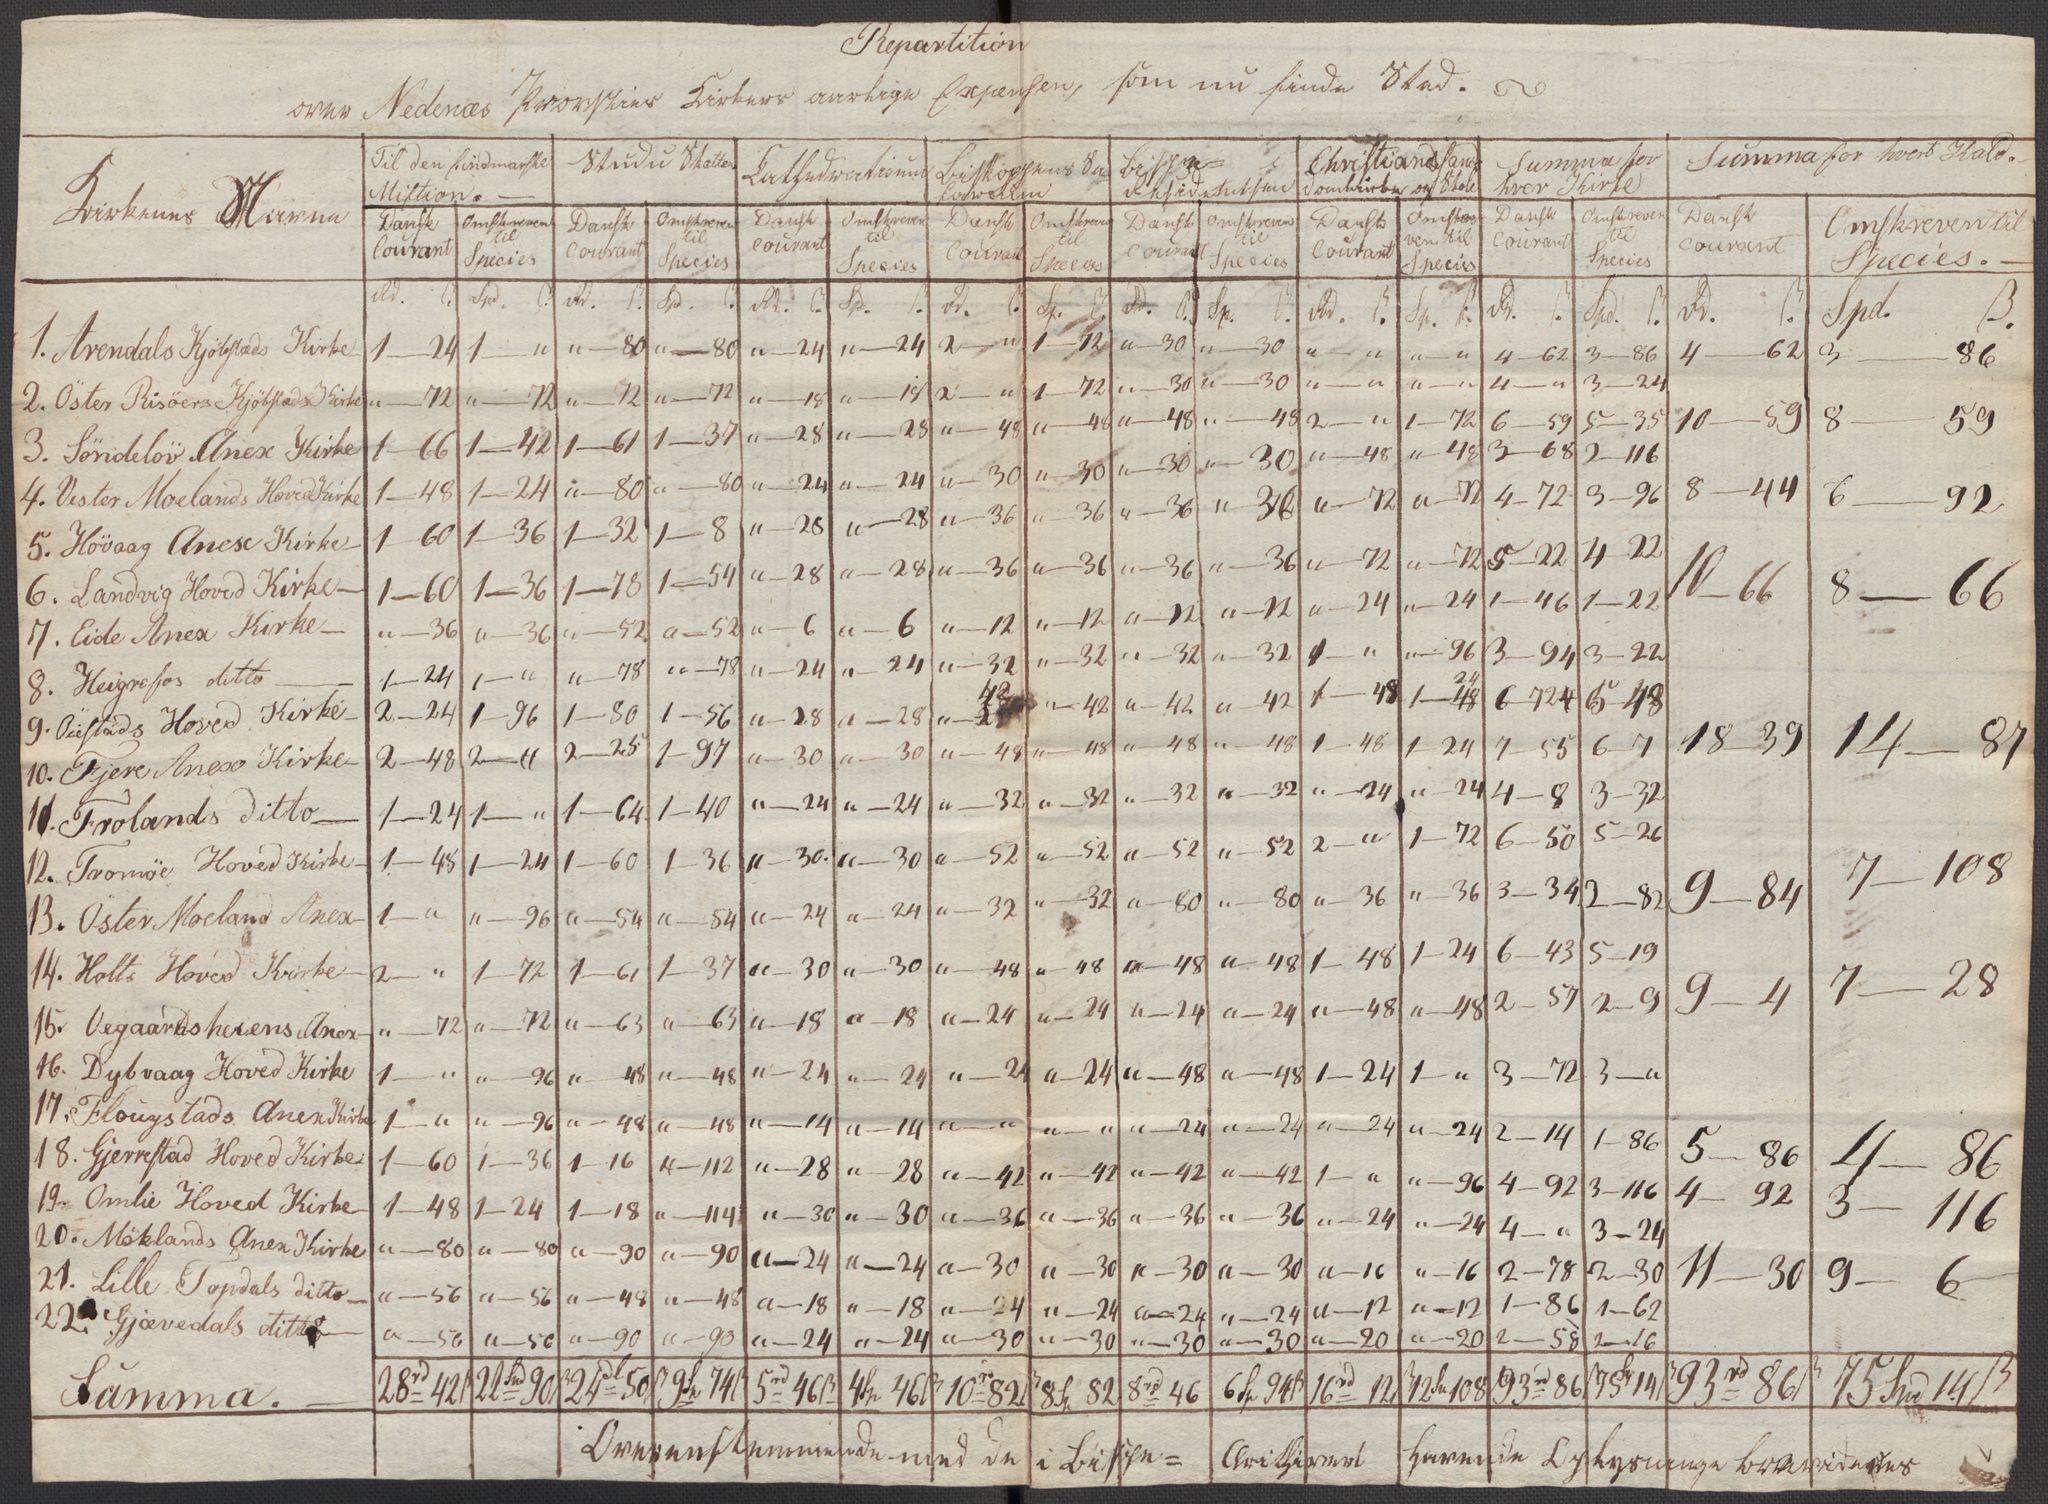 Repartition
over Nedenæs Provsties Kirkers aarlige Expenser, som nu finde Sted.
Kirkenes Navne | Til den findmarkske Mission. | Studii Skatten | Cathedraticum | Biskoppens | Bispe= | Christiansands Domkirke og Skole | Summa for hver Kirke | Summa for hvert Kald.
Dansk Courant | Omskreven til Species | Dansk Courant | Omskreven til Species | Dansk Courant | Omskreven til Species | Dansk Courant | Omskreven til Species | Dansk Courant | Omskreven til Species | Dansk Courant | Omskreven til Species | Dansk Courant | Omskreven til Species | Dansk Courant | Omskreven til Species.
Rd. ß. | Spd. ß. | Rd. ß. | Spd. ß. | Rd. ß. | Sp. ß. | Rd. ß. | Sp. ß. | Rd. ß. | Sp. ß. | Rd. ß. | Sp. ß. | Rd. ß. | Spd. ß. | Rd. ß. | Spd. ß.
1. Arendals Kjøbstads Kirke | 1—24 | 1—" | "—80 | "—80 | "—24 | "—24 | 2—" | 1—72 | "—30 | "—30 | "—" | "—" | 4—62 | 3—86 | 4—62 | 3—86
2. Öster Risöers Kjøbstads Kirke | "—72 | "—72 | "—72 | "—72 | "—18 | "—18 | 2—" | 1—72 | "—30 | "—30 | "—" | "—" | 4—" | 3—24
3. Söndelöv Anex Kirke | 1—66 | 1—42 | 1—61 | 1—37 | "—28 | "—28 | "—48 | "—48 | "—48 | "—48 | 2—" | 1—72 | 6—59 | 5—35 | 10—59 | 8—59
4. Vester Moelands Hoved Kirke | 1—48 | 1—24 | "—80 | "—80 | "—24 | "—24 | "—30 | "—30 | "—30 | "—30 | "—48 | "—48 | 3—68 | 2—116
5. Hövaag Anex Kirke | 1—60 | 1—36 | 1—32 | 1—8 | "—28 | "—28 | "—36 | "—36 | "—36 | "—36 | "—72 | "—72 | 4—72 | 3—96 | 8—44 | 6—92
6. Landvig Hoved Kirke | 1—60 | 1—36 | 1—78 | 1—54 | "—28 | "—28 | "—36 | "—36 | "—36 | "—36 | "—72 | "—72 | 5—22 | 4—22
7. Eide Anex Kirke | "—36 | "—36 | "—52 | "—52 | "—6 | "—6 | "—12 | "—12 | "—12 | "—12 | "—24 | "—24 | 1—46 | 1—22 | 10—66 | 8—66
8. Heigrefos ditto | 1—24 | 1—" | "—78 | "—78 | "—24 | "—24 | "—32 | "—32 | "—32 | "—32 | 1—" | "—96 | 3—94 | 3—22
9. Öiestads Hoved Kirke | 2—24 | 1—96 | 1—80 | 1—56 | "—28 | "—28 | "—42 | "—42 | "—42 | "—42 | 1—48 | 1—24 | 6—724 | 5—48
10. Fjere Anex Kirke | 2—48 | 2—" | 2—25 | 1—97 | "—30 | "—30 | "—48 | "—48 | "—48 | "—48 | 1—48 | 1—24 | 7—55 | 6—7 | 18—39 | 14—87
11. Frolands ditto | 1—24 | 1—" | 1—64 | 1—40 | "—24 | "—24 | "—32 | "—32 | "—32 | "—32 | "—24 | "—24 | 4—8 | 3—32
12. Tromöe Hoved Kirke | 1—48 | 1—24 | 1—60 | 1—36 | "—30 | "—30 | "—52 | "—52 | "—52 | "—52 | 2—" | 1—72 | 6—50 | 5—26
13. Öster Moeland Anex | 1—" | "—96 | "—54 | "—54 | "—24 | "—24 | "—32 | "—32 | "—80 | "—80 | "—36 | "—36 | 3—34 | 2—82 | 9—84 | 7—108
14. Holts Hoved Kirke | 2—" | 1—72 | 1—61 | 1—37 | "—30 | "—30 | "—48 | "—48 | "—48 | "—48 | 1—48 | 1—24 | 6—43 | 5—19
15. Vegaardsheiens Anex | "—72 | "—72 | "—63 | "—63 | "—18 | "—18 | "—24 | "—24 | "—24 | "—24 | "—48 | "—48 | 2—57 | 2—9 | 9—4 | 7—28
16. Dybvaag Hoved Kirke | 1—" | "—96 | "—48 | "—48 | "—24 | "—24 | "—24 | "—24 | "—48 | "—48 | 1—24 | 1—" | 3—72 | 3—"
17. Flougstads Anex Kirke | 1—" | "—96 | "—48 | "—48 | "—14 | "—14 | "—" | "—" | "—24 | "—24 | "—24 | "—24 | 2—14 | 1—86 | 5—86 | 4—86
18. Gjerrestad Hoved Kirke | 1—60 | 1—36 | 1—16 | "—112 | "—28 | "—28 | "—42 | "—42 | "—42 | "—42 | 1—" | "—96 | 4—92 | 3—116 | 4—92 | 3—116
19. Omlie Hoved Kirke | 1—48 | 1—24 | 1—18 | "—114 | "—30 | "—30 | "—36 | "—36 | "—36 | "—36 | "—24 | "—24 | 4—" | 3—24
20. Möklands Anex Kirke | "—80 | "—80 | "—90 | "—90 | "—24 | "—24 | "—30 | "—30 | "—30 | "—30 | "—16 | "—16 | 2—78 | 2—30 | 11—30 | 9—6
21. Lille Topdals ditto | "—56 | "—56 | "—48 | "—48 | "—18 | "—18 | "—24 | "—24 | "—24 | "—24 | "—12 | "—12 | 1—86 | 1—62
22. Gjævedals ditto | "—56 | "—56 | "—90 | "—90 | "—24 | "—24 | "—30 | "—30 | "—30 | "—30 | "—20 | "—20 | 2—58 | 2—16
Summa. | 28rd 42ß | 22Spd 90ß | 24rd 50ß | 19Sp 74ß | 5rd 46ß | 4Sp 46ß | 10rd 82ß | 8Sp 82 | 8rd 46 | 6Sp 94ß | 16rd 12ß | 12Sp 108 | 93rd 86ß | 75Sp 14ß | 93rd 86ß | 75 Spd 14ß
Overensstemmende med de i Bispe= Archivet havende Oplysninger bevidnes